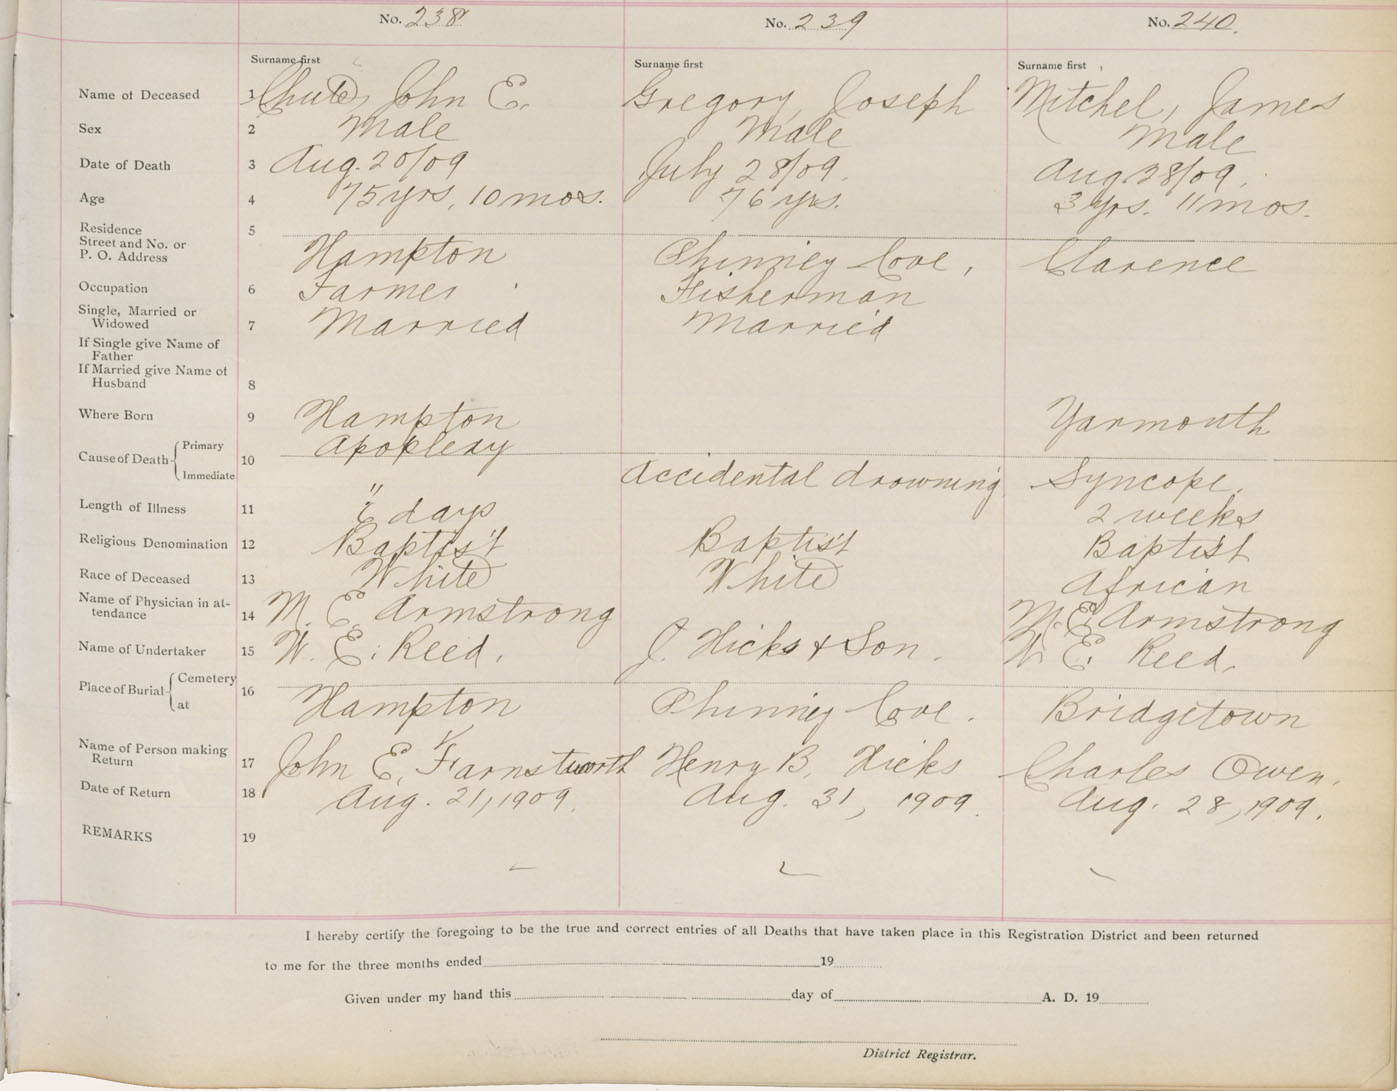 No. 238 No. 239 No. 240.
Surname first Surname first Surname first
Name of Deceased 1 Chute, John E. Gregory, Joseph Mitchel, James
Sex 2 Male Male Male
Date of Death 3 Aug. 20/09 July 28/09. Aug 28/09.
Age 4 75 yrs, 10 mos. 76 yrs. 3 yrs. 11 mos.
Residence 5
Street and No. or
P. O. Address Hampton Phinney Cove, Clarence
Occupation 6 Farmer Fisherman
Single, Married or
Widowed 7 Married Married
If Single give Name of
Father
If Married give Name of
Husband 8
Where Born 9 Hampton Yarmouth
Cause of Death Primary 10 Apoplexy
Immediate " Accidental drowning Syncope.
Length of Illness 11 days 2 weeks
Religious Denomination 12 Baptist Baptist Baptist
Race of Deceased 13 White White African
Name of Physician in at-
tendance 14 M. E. Armstrong M. E. Armstrong
Name of Undertaker 15 W. E. Reed. J. Hicks & Son. W. E. Reed.
Place of Burial Cemetery 16
at Hampton Phinney Cove. Bridgetown
Name of Person making
Return 17 John E. Farnsworth Henry B. Hicks Charles Owen.
Date of Return 18 Aug. 21, 1909. Aug. 31, 1909. Aug. 28, 1909.
REMARKS 19
I hereby certify the foregoing to be the true and correct entries of all Deaths that have taken place in this Registration District and been returned
to me for the three months ended 19
Given under my hand this day of A. D. 19
District Registrar.